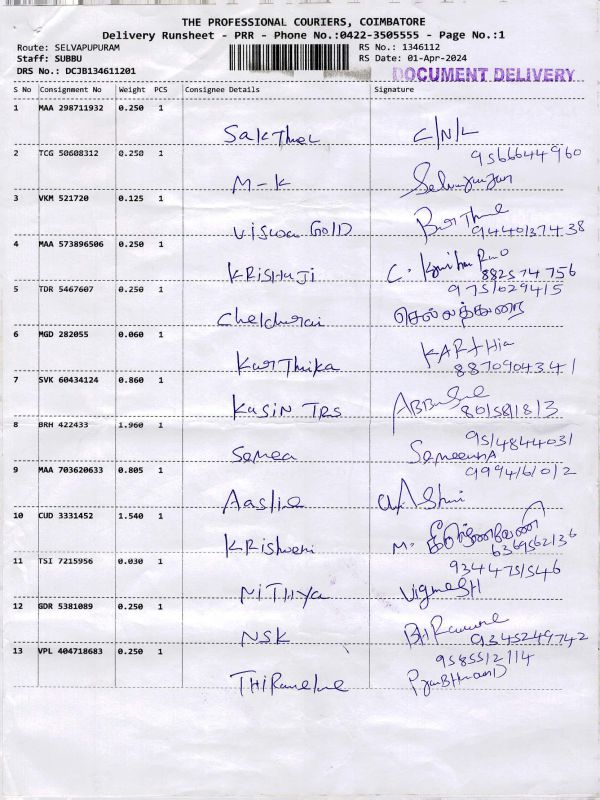 THE PROFESSIONAL COURIERS, COIMBATORE
Delivery Runsheet - PRR - Phone No.:0422-3505555 - Page No.:1
Route: SELVAPUPURAM
RS No.: 1346112
Staff: SUBBU
RS Date: 01-Apr-2024
DRS No.: DCJB134611201
DOCUMENT DELIVERY
S No Consignment No Weight PCS Consignee Details Signature
1 MAA 298711932 0.250 1
Sakthel C/N/L
9566644960
2 TCG 50608312 0.250 1
M-K
3 VKM 521720 0.125 1
Viswa GOLD
9440137438
4 MAA 573896506 0.250 1
KRISHUJI
882574756
5 TDR 5467607 0.250 1
9751029415
Cheldurai செல்லத்துரை
6 MGD 282055 0.060 1
Karthika KARTHIG
8870904341
7 SVK 60434124 0.860 1
KASIN TRS
801581813
8 BRH 422433 1.960 1
9514844031
Samea Sameena
9 MAA 703620633 0.805 1
9994161012
Aaslie
10 CUD 3331452 1.540 1
Krishveni M.
6369562136
11 TSI 7215956 0.030 1
9344751546
NITHYA VIGNESH
12 GDR 5381089 0.250 1
NSK
9345249742
13 VPL 404718683 0.250 1
9585512114